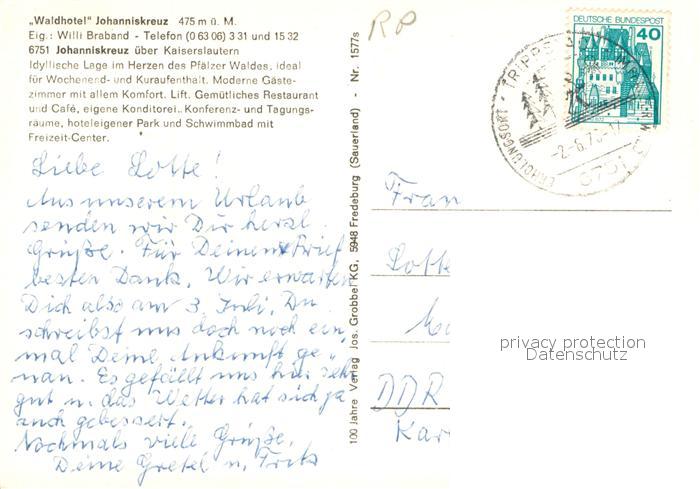 „Waldhotel" Johanniskreuz 475 m ü. M.
Eig.: Willi Braband - Telefon (0 63 06) 3 31 und 15 32
6751 Johanniskreuz über Kaiserslautern
Idyllische Lage im Herzen des Pfälzer Waldes, ideal
für Wochenend- und Kuraufenthalt. Moderne Gäste-
zimmer mit allem Komfort. Lift. Gemütliches Restaurant
und Café, eigene Konditorei. Konferenz- und Tagungs-
räume, hoteleigener Park und Schwimmbad mit
Freizeit-Center.
Liebe Lotte!
Aus unserem Urlaub
senden wir Dir herzl.
Grüße. Für Deinen Brief
besten Dank. Wir erwarten
Dich also am 3. Juli. Du
schreibst uns doch noch ein
mal Deine Ankunft ge-
nau. Es gefällt uns hier sehr
gut u. das Wetter hat sich ja
auch gebessert.
Nochmals viele Grüße,
Deine Gretel u. Fritz
100 Jahre Verlag Jos. Grobbel KG, 5948 Fredeburg (Sauerland) - Nr. 1577s
RP
DEUTSCHE BUNDESPOST
40
ERHOLUNGSORT
-2.-6.7
6751
Frau
Lotte
DDR
Kar
privacy protection
Datenschutz